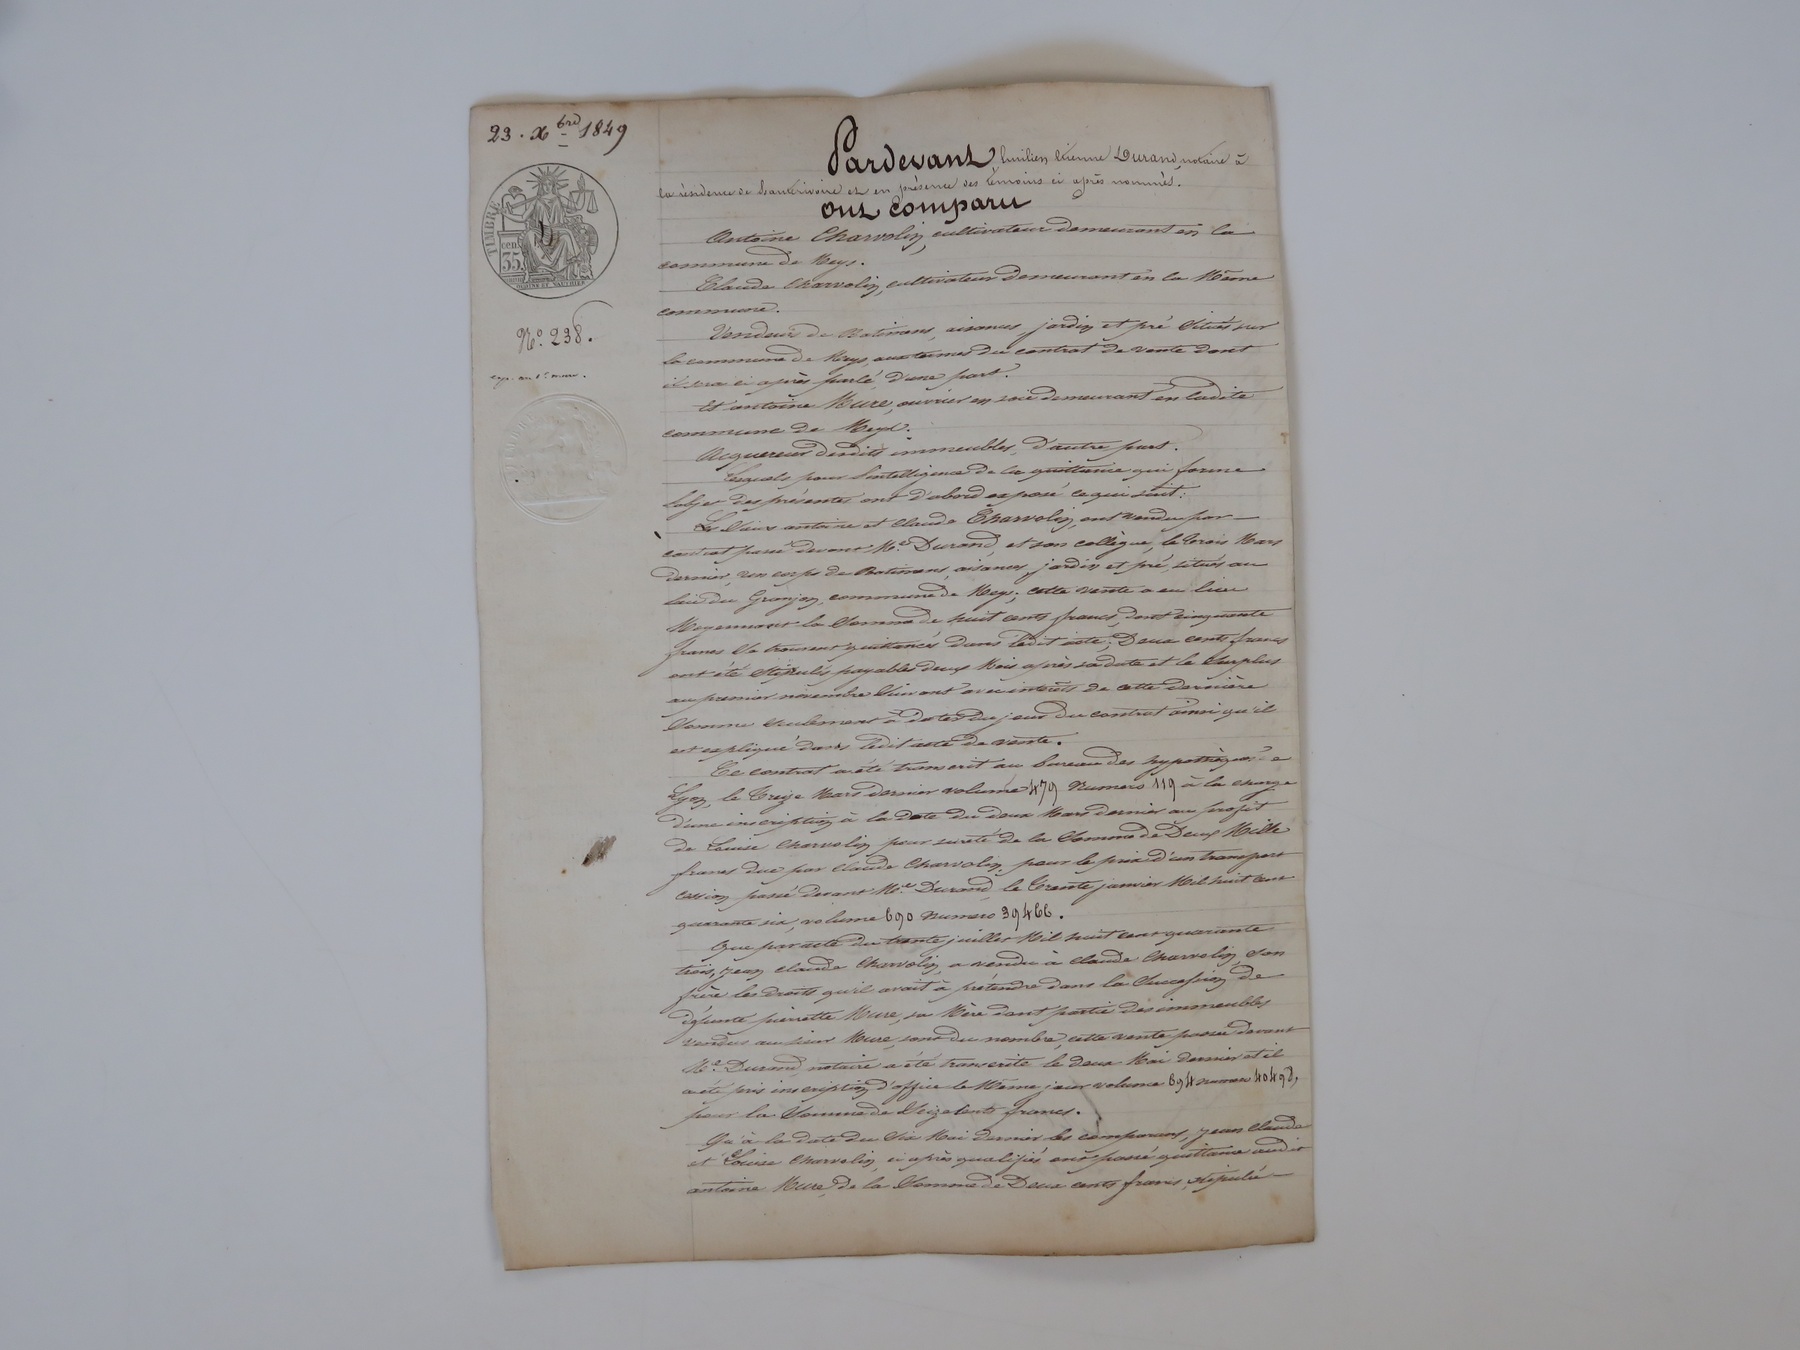 23. Xbre 1849
TIMBRE
cent.
35.
No. 238.
Pardevant Emilien Etienne Durand, notaire à
la résidence de et en présence des témoins ci après nommés.
ont comparu
Antoine Charvolin, cultivateur demeurant en la
commune de Meys.
Claude Charvolin, cultivateur demeurant en la Même
commune.
Vendeurs de Batimens, aisances, jardin et pré Situés sur
la commune de Meys, aux termes du contrat de vente dont
il sera ci après parlé, d'une part.
Et antoine Mure, ouvrier en soie demeurant en ladite
commune de Meys.
Acquereur desdits immeubles, d'autre part.
Lesquels pour l'intelligence de la quittance qui forme
l'objet des présentes ont d'abord exposé ce qui suit:
Les Sieurs antoine et Claude Charvolin, ont vendu par
contrat passé devant Me. Durand, et son collègue, le trois Mars
dernier, un corps de Batimens, aisances, jardin et pré, situés au
lieu du Granjon, commune de Meys; cette vente a eu lieu
Moyennant la Somme de huit cents francs, dont cinquante
francs Se trouvent quittancés dans ledit acte; Deux cents francs
ont été Stipulés payables deux Mois après sa date et le Surplus
au premier novembre Suivant avec intérêts de cette dernière
Somme Seulement à dater du jour du contrat ainsi qu'il
est expliqué dans ledit acte de vente.
Ce contrat a été transcrit au bureau des hypothèques de
Lyon, le Treize Mars dernier volume 479 Numero 119 à la charge
d'une inscription à la date du deux Mars dernier au profit
de Louise Charvolin pour sureté de la Somme de Deux Mille
francs due par Claude Charvolin, pour le prix d'un transport
cession passé devant Me. Durand, le Trente janvier Mil huit cent
quarante six, volume 690 Numero 39466.
Que par acte du trente juillet Mil huit cent quarante
trois, jean Claude Charvolin, a vendu à Claude Charvolin, Son
frère les droits qu'il avait à prétendre dans la Succession de
défunte pierrette Mure, sa Mère dont partie des immeubles
vendus au sieur Mure, sont du nombre, cette vente passée devant
Me. Durand, notaire a été transcrite le deux Mai dernier et il
a été pris inscription d'office le Même jour volume 694 numero
pour la Somme de Seize cents francs.
Qu'à la date du Six Mai dernier les comparans, jean Claude
et Louise Charvolin, ci après qualifiés ont passé quittance audit
antoine Mure, de la Somme de Deux cents francs, stipulée